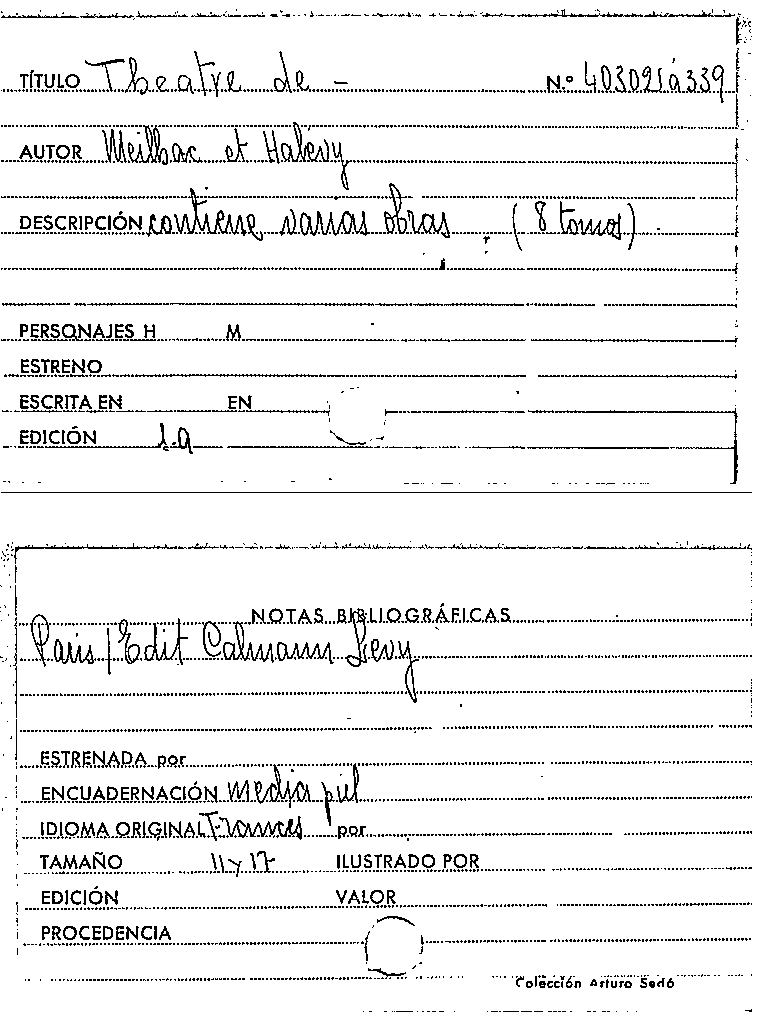 TÍTULO Theatre de - N.º 403091á339
AUTOR Meilhac et Halévy
DESCRIPCIÓN contiene varias obras (8 tomos)
PERSONAJES H M
ESTRENO
ESCRITA EN EN
EDICIÓN 1.a
NOTAS BIBLIOGRÁFICAS
Paris / Edit Calmann Levy
ESTRENADA por
ENCUADERNACIÓN media piel
IDIOMA ORIGINAL Frances por
TAMAÑO 11 y 17 ILUSTRADO POR
EDICIÓN VALOR
PROCEDENCIA
Colección Arturo Sedó